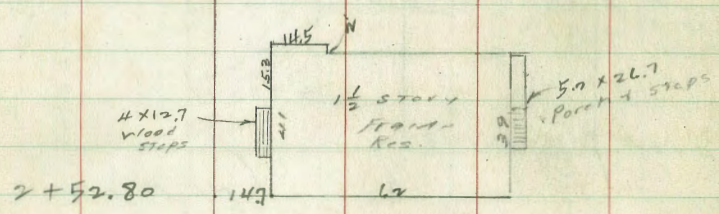 14.5
15.3
4 x 12.7
wood
steps
41
1 1/2 STORY
Frame
Res.
39
5.7 x 26.7
Porch & Steps
2 + 52.80
14.7
62